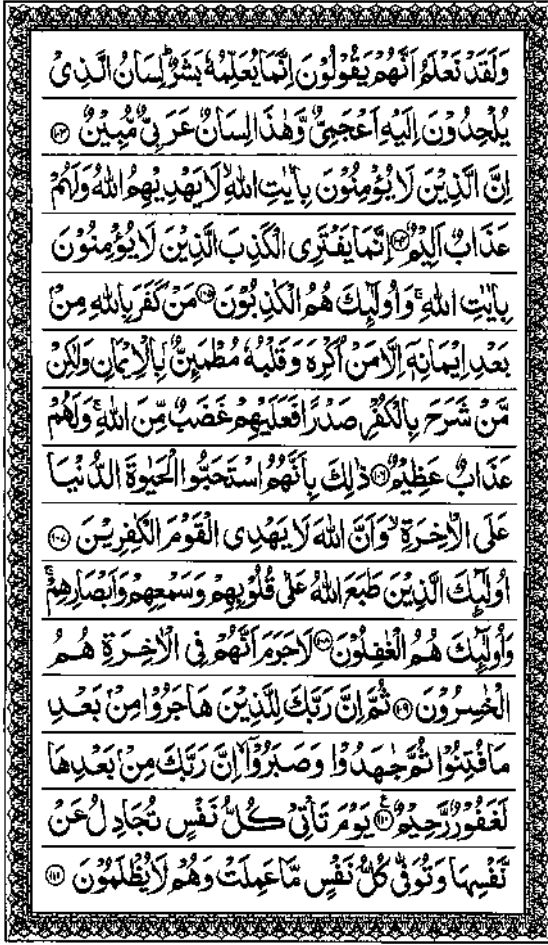 وَلَقَدْ نَعْلَمُ اَنَّهُمْ يَقُوْلُوْنَ اِنَّمَا يُعَلِّمُهٗ بَشَرٌ ؕ لِسَانُ الَّذِىْ
يُلْحِدُوْنَ اِلَيْهِ اَعْجَمِىٌّ وَّهٰذَا لِسَانٌ عَرَبِىٌّ مُّبِيْنٌ ﴿۱۰۳﴾
اِنَّ الَّذِيْنَ لَا يُؤْمِنُوْنَ بِاٰيٰتِ اللّٰهِ ۙ لَا يَهْدِيْهِمُ اللّٰهُ وَلَهُمْ
عَذَابٌ اَلِيْمٌ ﴿۱۰۴﴾ اِنَّمَا يَفْتَرِى الْكَذِبَ الَّذِيْنَ لَا يُؤْمِنُوْنَ
بِاٰيٰتِ اللّٰهِ ۚ وَاُولٰٓئِكَ هُمُ الْكٰذِبُوْنَ ﴿۱۰۵﴾ مَنْ كَفَرَ بِاللّٰهِ مِنْۢ
بَعْدِ اِيْمَانِهٖۤ اِلَّا مَنْ اُكْرِهَ وَقَلْبُهٗ مُطْمَئِنٌّۢ بِالْاِيْمَانِ وَلٰكِنْ
مَّنْ شَرَحَ بِالْكُفْرِ صَدْرًا فَعَلَيْهِمْ غَضَبٌ مِّنَ اللّٰهِ ۚ وَلَهُمْ
عَذَابٌ عَظِيْمٌ ﴿۱۰۶﴾ ذٰلِكَ بِاَنَّهُمُ اسْتَحَبُّوا الْحَيٰوةَ الدُّنْيَا
عَلَى الْاٰخِرَةِ ۙ وَاَنَّ اللّٰهَ لَا يَهْدِى الْقَوْمَ الْكٰفِرِيْنَ ﴿۱۰۷﴾
اُولٰٓئِكَ الَّذِيْنَ طَبَعَ اللّٰهُ عَلٰى قُلُوْبِهِمْ وَسَمْعِهِمْ وَاَبْصَارِهِمْ ۚ
وَاُولٰٓئِكَ هُمُ الْغٰفِلُوْنَ ﴿۱۰۸﴾ لَا جَرَمَ اَنَّهُمْ فِى الْاٰخِرَةِ هُمُ
الْخٰسِرُوْنَ ﴿۱۰۹﴾ ثُمَّ اِنَّ رَبَّكَ لِلَّذِيْنَ هَاجَرُوْا مِنْۢ بَعْدِ
مَا فُتِنُوْا ثُمَّ جٰهَدُوْا وَصَبَرُوْۤا ۙ اِنَّ رَبَّكَ مِنْۢ بَعْدِهَا
لَغَفُوْرٌ رَّحِيْمٌ ﴿۱۱۰﴾ يَوْمَ تَاْتِىْ كُلُّ نَفْسٍ تُجَادِلُ عَنْ
نَّفْسِهَا وَتُوَفّٰى كُلُّ نَفْسٍ مَّا عَمِلَتْ وَهُمْ لَا يُظْلَمُوْنَ ﴿۱۱۱﴾